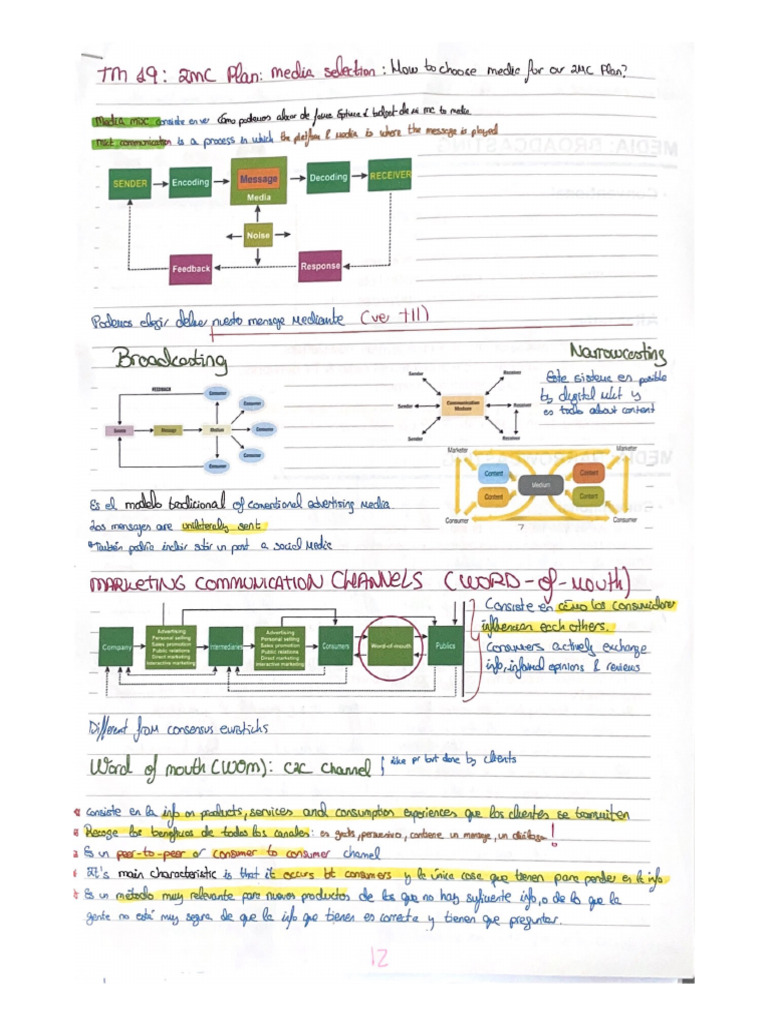 TM 19: IMC Plan: Media selection: How to choose media for our IMC Plan?
Media mix consiste en ver cómo podemos
mkt communication is a process in which the platform & media is where the message is played
SENDER Encoding Message Decoding RECEIVER
Media
Noise
Feedback Response
Podemos elegir deliver nuestro mensage mediante (ver t11)
Broadcasting
Narrowcasting
FEEDBACK
Consumer
Consumer
Sender Message Medium Consumer
Consumer
Consumer
Sender Receiver
Sender Communication Medium Receiver
Sender Receiver
Este sistema es posible
by digital mkt y
es todo about content
Marketer Marketer
Content Content
Medium
Content Content
Consumer Consumer
7
Es el modelo tradicional of conventional advertising media.
Los mensages are unilaterally sent
*También podría incluir subir un post a social media
MARKETING COMMUNICATION CHANNELS (WORD-of-MOUTH)
Company
Advertising
Personal selling
Sales promotion
Public relations
Direct marketing
Interactive marketing
Intermediaries
Advertising
Personal selling
Sales promotion
Public relations
Direct marketing
Interactive marketing
Consumers
Word-of-mouth
Publics
Consiste en cómo los consumidores
influencian each others.
Consumers actively exchange
info, informal opinions & reviews
Different from consensus
Word of mouth (WOM): C2C channel like pr but done by clients
Consiste en la info on products, services and consumption experiences que los clientes se transmiten
Recoge los beneficios de todos los canales: es gratis, persuasivo, contiene un mensage, un !
Es un peer-to-peer or consumer to consumer channel
It's main characteristic is that it occurs bt consumers y la única cosa que tienen para perder es la info
Es un método muy relevante para nuevos productos de los que no hay suficiente info, o de lo que la
gente no está muy segura de que la info que tienen es correcta y tienen que preguntar.
12